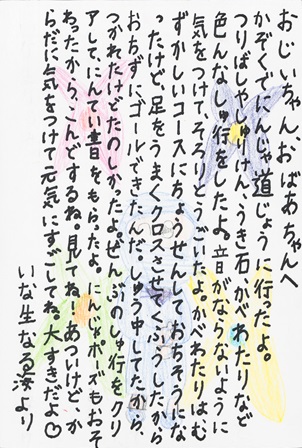 おじいちゃん、おばあちゃんへ
かぞくでにんじゃ道じょうに行たよ。
つりばしやしゅりけん、うき石、かべわたりなど
色んなしゅ行をしたよ。音がならないように
気をつけて、そろりとうごいたよ。かべわたりはむ
ずかしいコースにちょうせんしておちそうにな
ったけど、足をうまくクロスさせてくふうしたから
おちずにゴールできたんだ。しゅう中してたから、
つかれたけどたのしかったよ。ぜんぶのしゅ行をクリ
アして、にんてい書をもらったよ。にんじゃポーズもおそ
わったから、こんどするね。見てね。あついけど、か
らだに気をつけて元気にすごしてね。大すきだよ♡
いな生なる海より